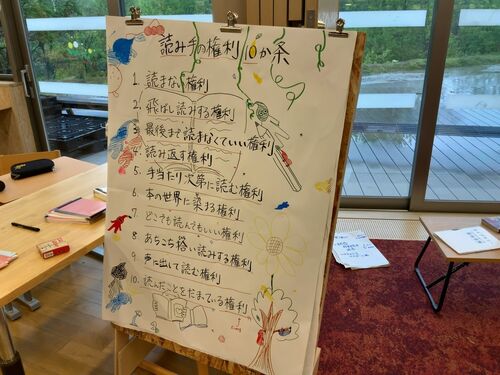 読み手の権利10か条
1. 読まない権利
2. 飛ばし読みする権利
3. 最後まで読まなくていい権利
4. 読み返す権利
5. 手当たり次第に読む権利
6. 本の世界に染まる権利
7. どこでも読んでもいい権利
8. あちこち拾い読みする権利
9. 声に出して読む権利
10. 読んだことをだまっている権利